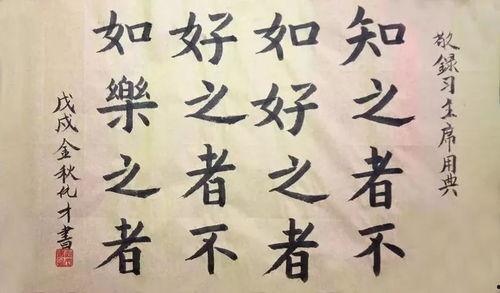 敬録习主席用典
知之者不
如好之者
好之者不
如樂之者
戊戌金秋礼才書